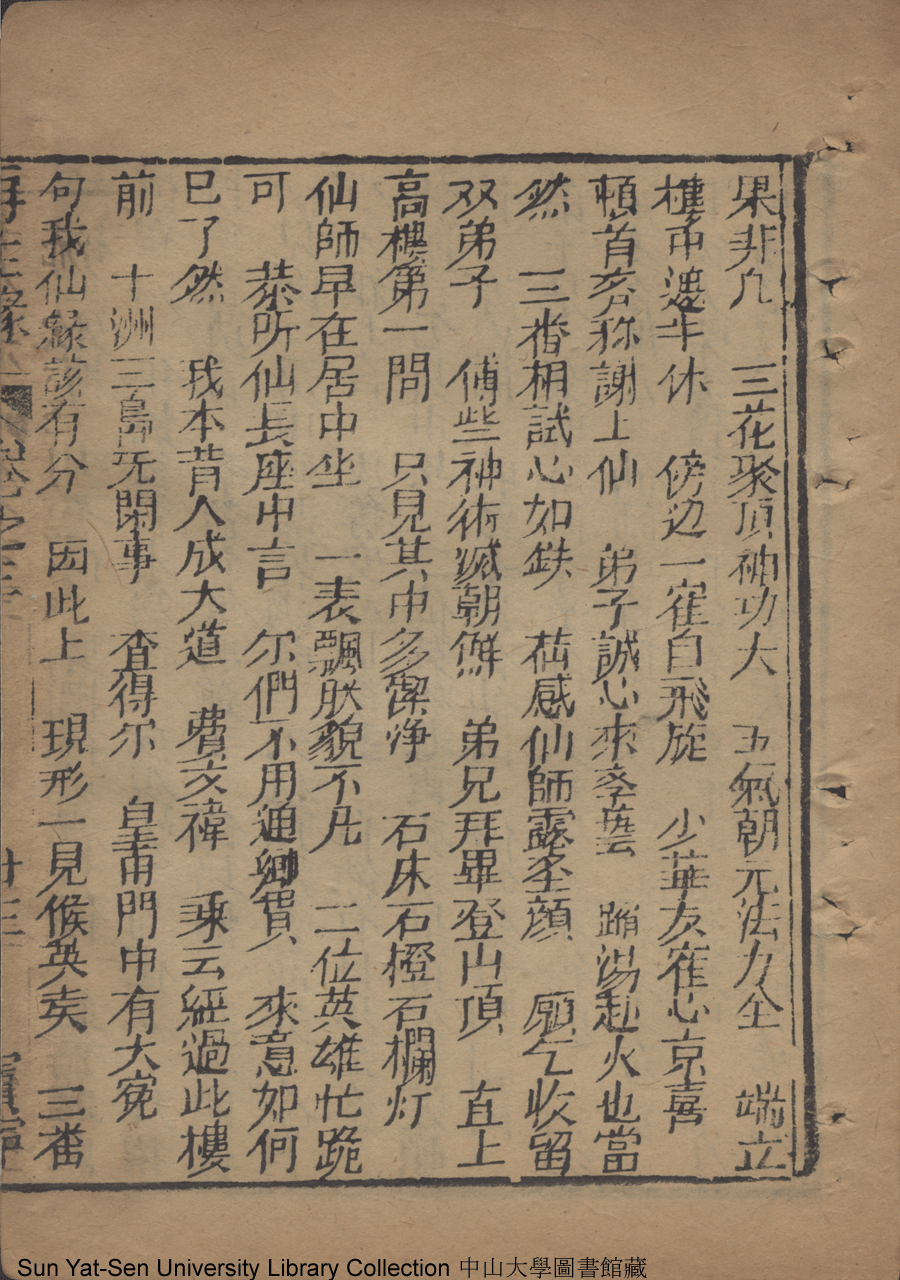 果非凢　三花聚頂神功大　五氣朝元法力全　端立
樓中邊半休　傍边一寉自飛旋　少華友寉心京喜
頓首客称謝上仙　弟子誠心來李藝　蹈湯赴火也當
然　三畨相試心如鉄　茲感仙師露圣顔　願乞收留
双弟子　傅些神術滅朝鮮　弟兄拜畢登山頂　直上
高樓第一問　只見其中多潔净　石床石橙石欄灯
仙師早在居中坐　一表飄肰貌不凢　二位英雄忙跪
可　恭听仙長座中言　尔們不用通鄉貫　來意如何
巳了然　我本昔人成大道　費文禕　乘云經過此樓
前　十洲三島旡閑事　査得尔　皇甫門中有大寃
句我仙緣該有分　因此上　現形一見候英矣　三畨
再生緣　卷之三　廿三
Sun Yat-Sen University Library Collection 中山大學圖書館藏